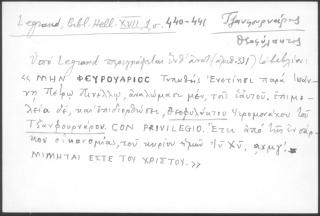 Legrand, Bibl. Hell. XVII, 1, σ. 440-441
Τζανφουρνάρης
Θεοφύλακτος
Ὑπὸ Legrand περιγράφεται ὑπ' ἀριθ.
« ΜΗΝ ΦΕΥΡΟΥΑΡΙΟΣ Τυπωθεὶς Ἐνετίησι παρὰ Ἰωάν-
νῃ Πέτρῳ Πινέλλῳ, ἀναλώμασι μὲν, τοῖς ἑαυτοῦ, ἐπιμε-
λείᾳ δὲ, καὶ ἐπιδιορθώσει, Θεοφυλάκτου Ἱερομονάχου τοῦ
Τζανφουρνάρου. CON PRIVILEGIO. Ἔτει ἀπὸ τῆς ἐνσάρ-
κου οἰκονομίας, τοῦ κυρίου ἡμῶν Ἰῦ Χῦ, ͵αχμγ´.
ΜΙΜΗΤΑΙ ΕΣΤΕ ΤΟΥ ΧΡΙΣΤΟΥ. »